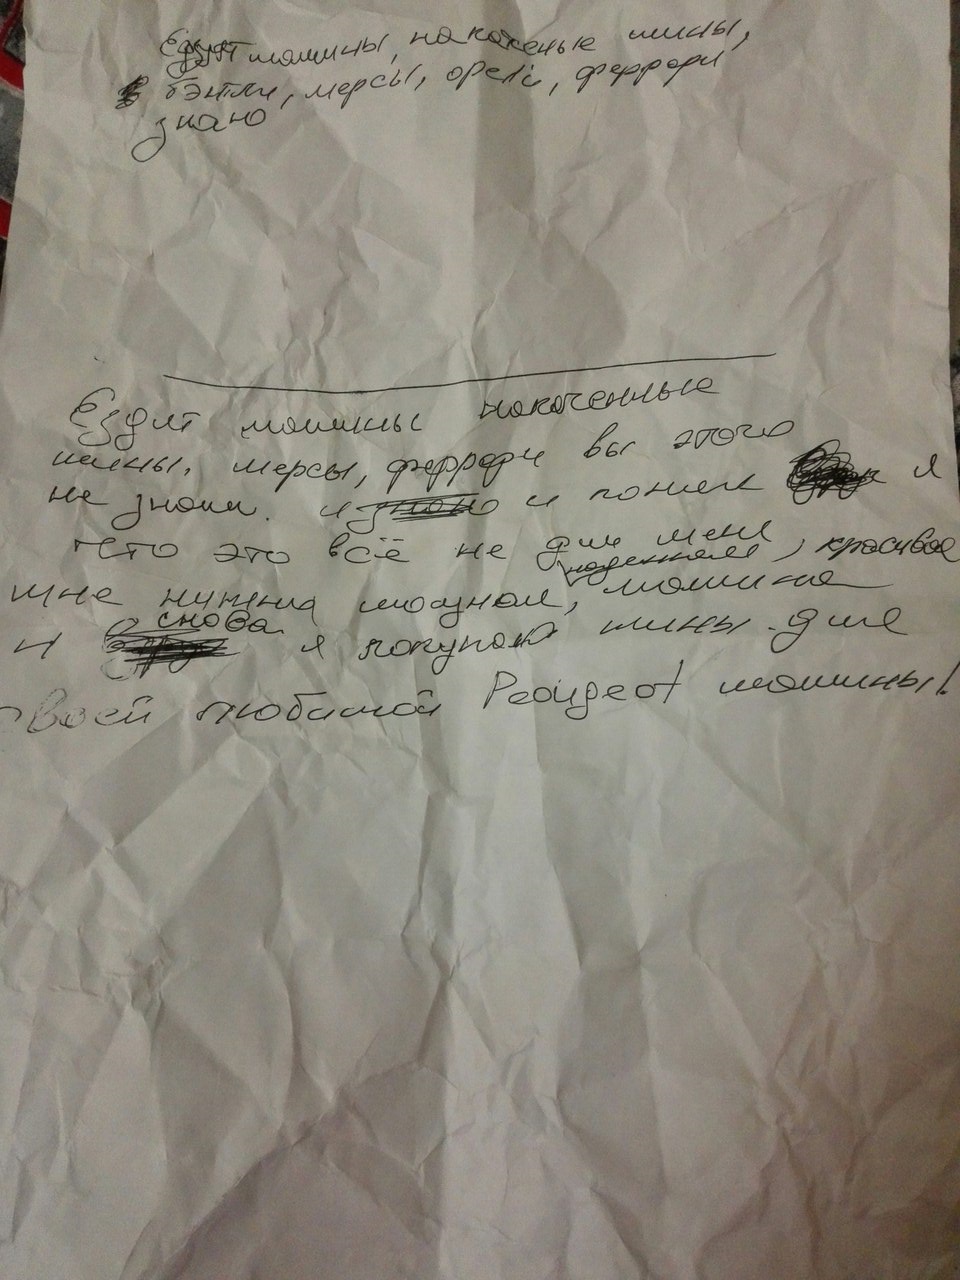 Едут машины, накаченые шины,
бэнтли, мерсы, феррари
знаю
Ездят машины накаченные
шины, мерсы, феррари вы этого
не знали. и знаю и понял я
что это всё не для меня
надежная, красивая
мне нужна мощная, машина
и снова я покупаю шины для
своей любимой Peugeot машины!